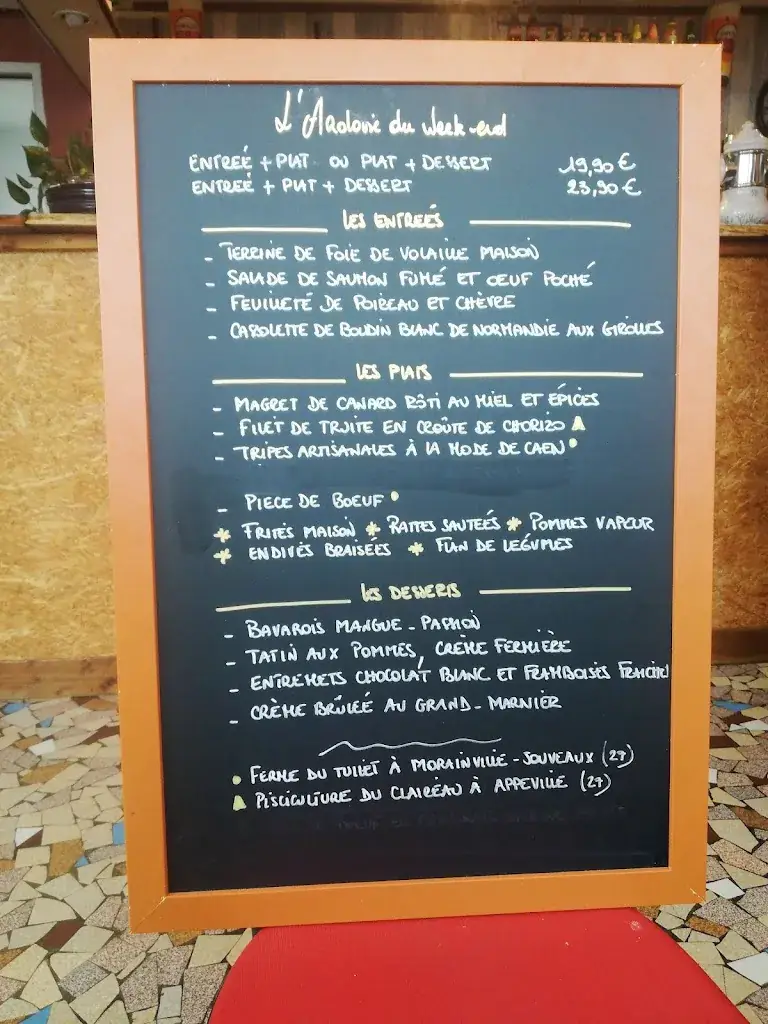 L'Ardoise du week-end
ENTREÉ + PLAT OU PLAT + DESSERT 19,90 €
ENTREÉ + PLAT + DESSERT 23,90 €
LES ENTREÉS
- TERRINE DE FOIE DE VOLAILLE MAISON
- SALADE DE SAUMON FUMÉ ET OEUF POCHÉ
- FEUILLETÉ DE POIREAU ET CHÈVRE
- CASSOLETTE DE BOUDIN BLANC DE NORMANDIE AUX GIROLLES
LES PLATS
- MAGRET DE CANARD RÔTI AU MIEL ET ÉPICES
- FILET DE TRUITE EN CROÛTE DE CHORIZO ▲
- TRIPES ARTISANALES À LA MODE DE CAEN •
- PIECE DE BOEUF •
* FRITES MAISON * RATTES SAUTEÉS * POMMES VAPEUR
* ENDIVES BRAISÉES * FLAN DE LEGUMES
LES DESSERTS
- BAVAROIS MANGUE - PASSION
- TATIN AUX POMMES, CRÈME FERMIÈRE
- ENTREMETS CHOCOLAT BLANC ET FRAMBOISES FRAICHES
- CRÈME BRÛLEÉ AU GRAND - MARNIER
• FERME DU TUILET À MORAINVILLE - JOUVEAUX (27)
▲ PISCICULTURE DU CLAIREAU À APPEVILLE (27)